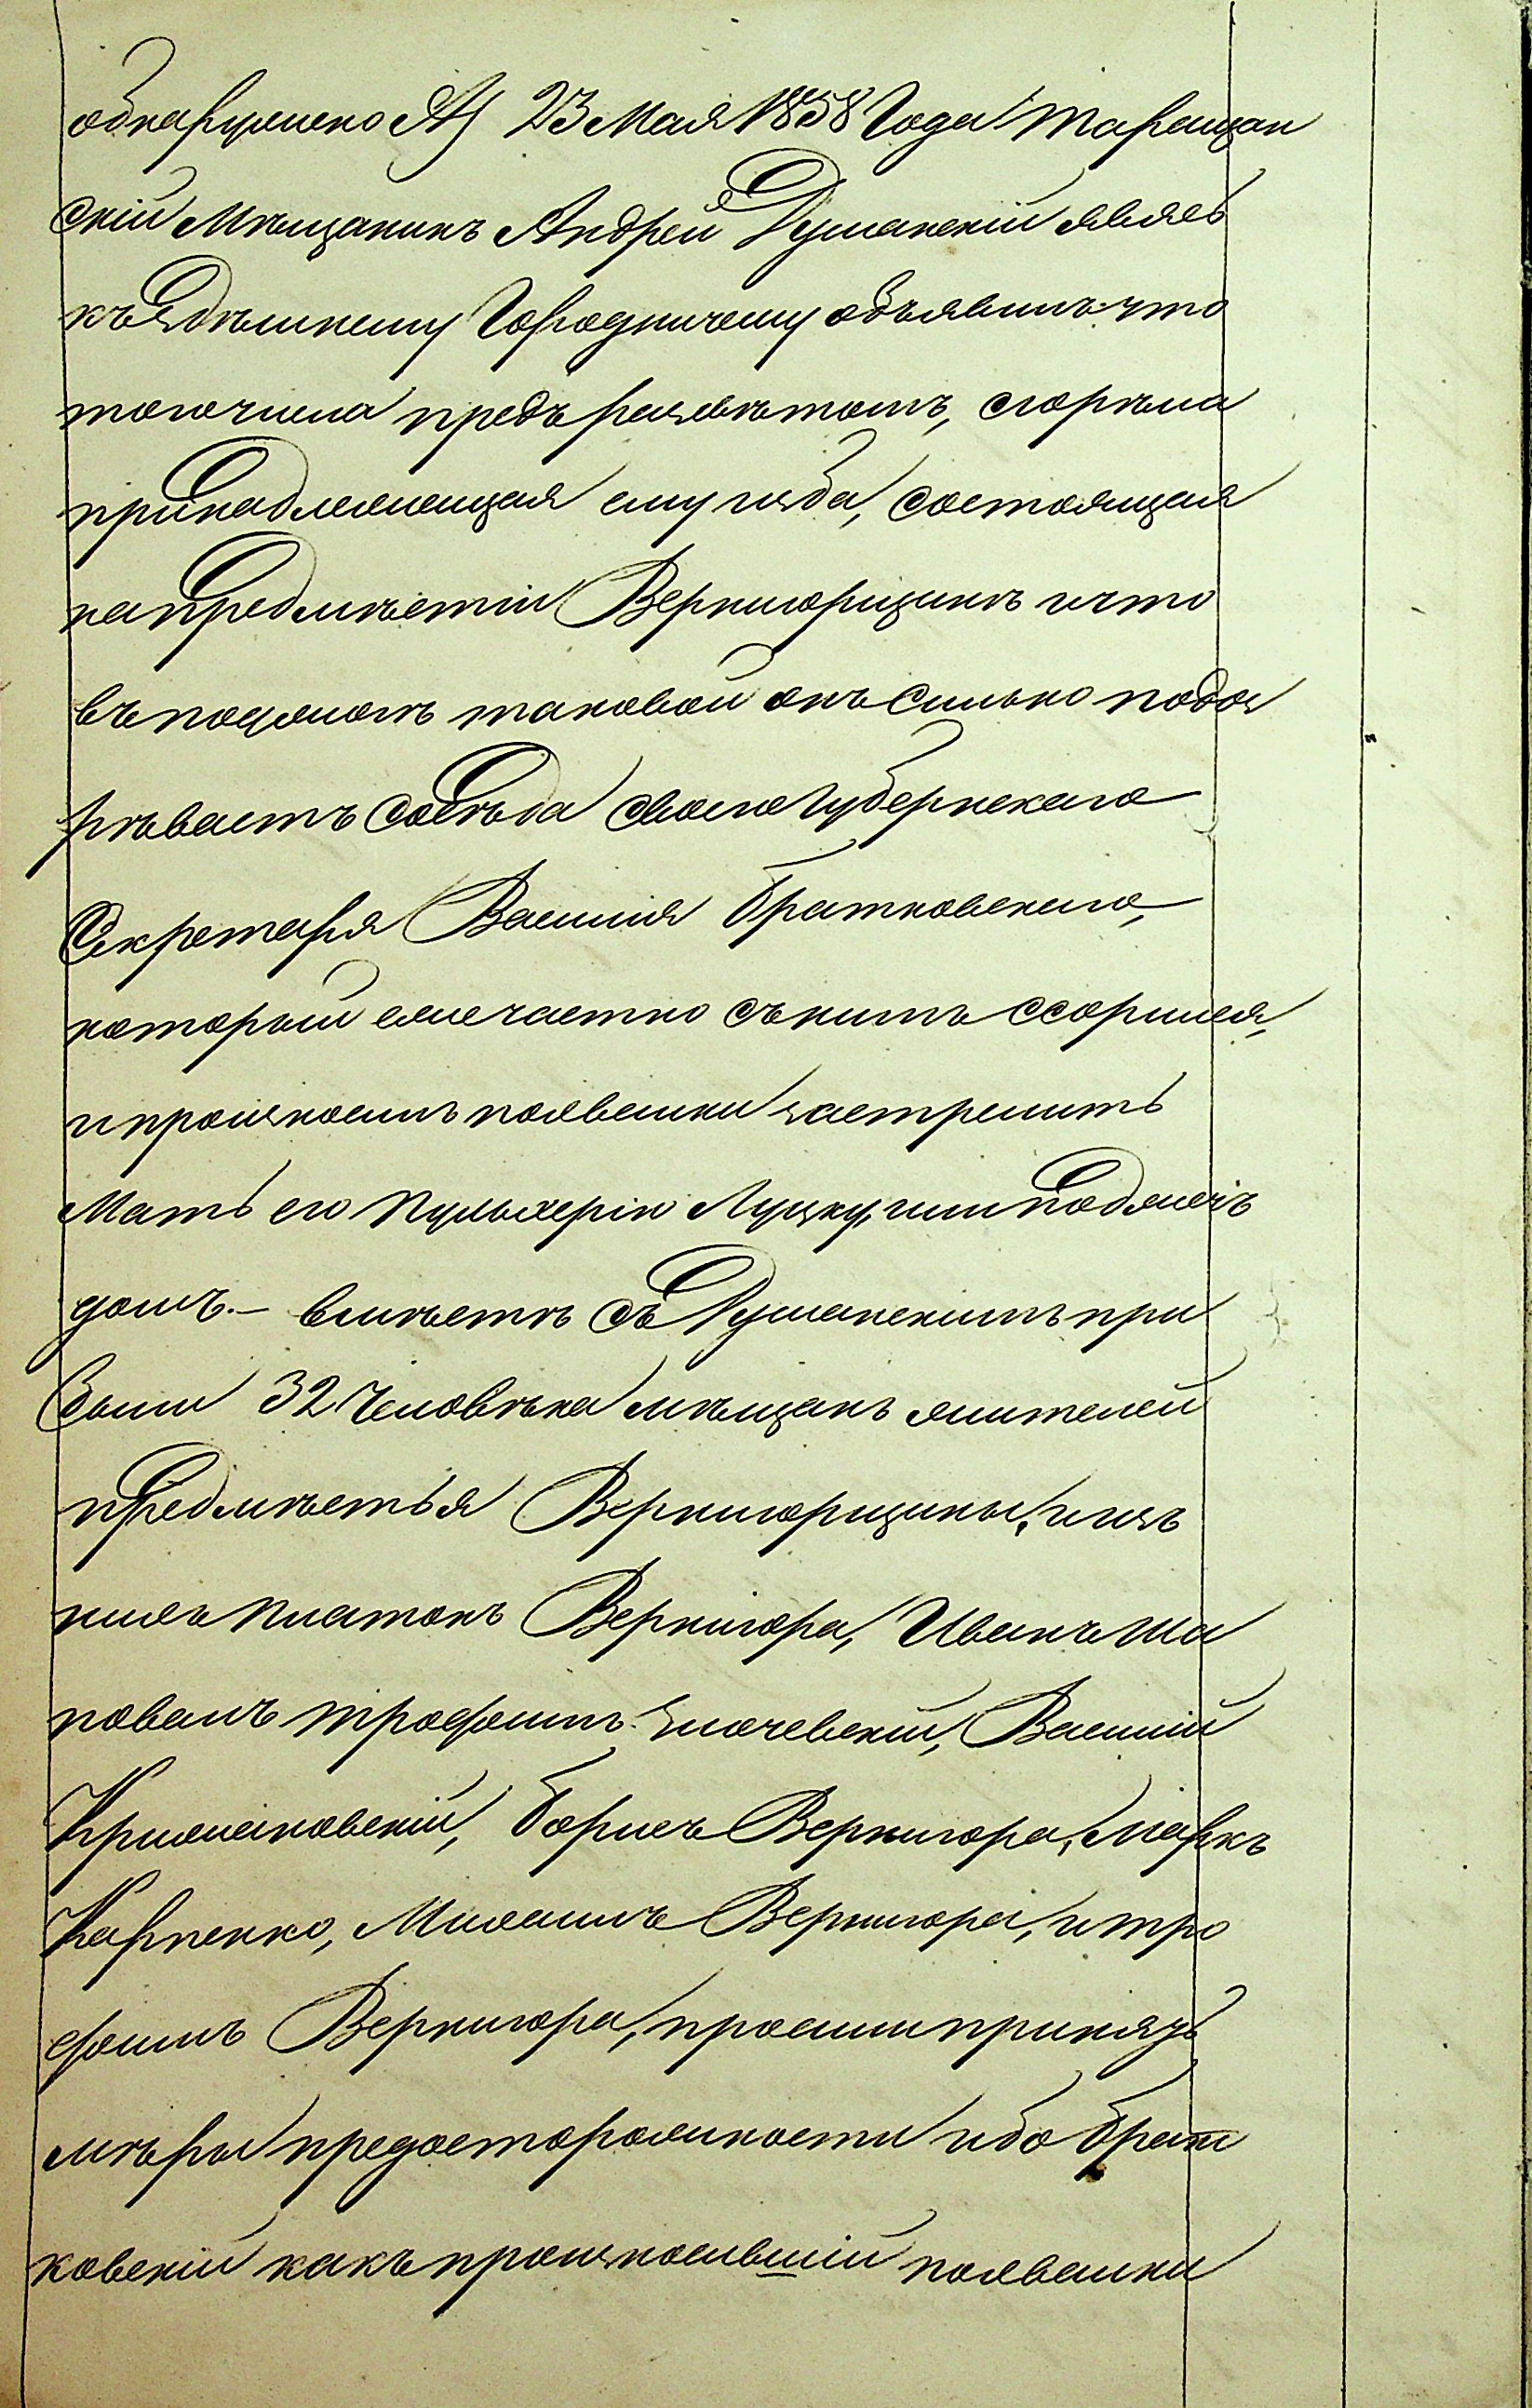 обнаружено А) 23 Мая 1858 Года Таращан
скій Мѣщанинъ Андрей Думанскій явясь
къ здѣшнему Городничему объявилъ что
того числа предъ разсвѣтомъ, сгорѣла
принадлежащая ему изба, состоящая
на предмѣстіи Вернигорщинѣ и что
въ поджогѣ таковой онъ сильно подоз
рѣваетъ сосѣда своего Губернскаго
Секретаря Василія Братковскаго,
который ежечастно съ нимъ ссорился,
и произносилъ похвалки застрелить
Мать его Пульхерію Луцку, или поджечь
домъ. – вмѣстѣ съ Думанскимъ при
были 32 Человѣка мѣщанъ жителей
предмѣстья Вернигорщины, и изъ
нихъ Платонъ Вернигора, Иванъ Ша
повалъ Трофимъ Злочевскій, Василій
Крижановскій, Борисъ Вернигора, Маркъ
Карпенко, Михаилъ Вернигора, и Тро
фимъ Вернигора, просили принять
мѣры предосторожности ибо Брат
ковскій какъ произносившій похвалки